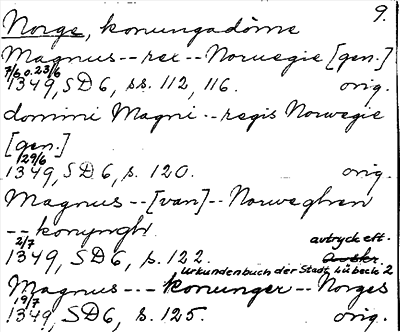 9.
Norge, konungadöme
Magnus -- rex -- Noruegie [gen.]
7/6 o. 23/6
1349, SD 6, ss. 112, 116. orig.
domini Magni -- regis Norwegie
[gen.]
29/6
1349, SD 6, s. 120. orig.
Magnus -- [van] -- Norweghen
-- konyngh.
2/7 avtryck eft.
1349, SD 6, s. 122.
Urkundenbuch der Stadt Lübeck 2
Magnus -- konunger -- Norges
19/7
1349, SD 6, s. 125. orig.